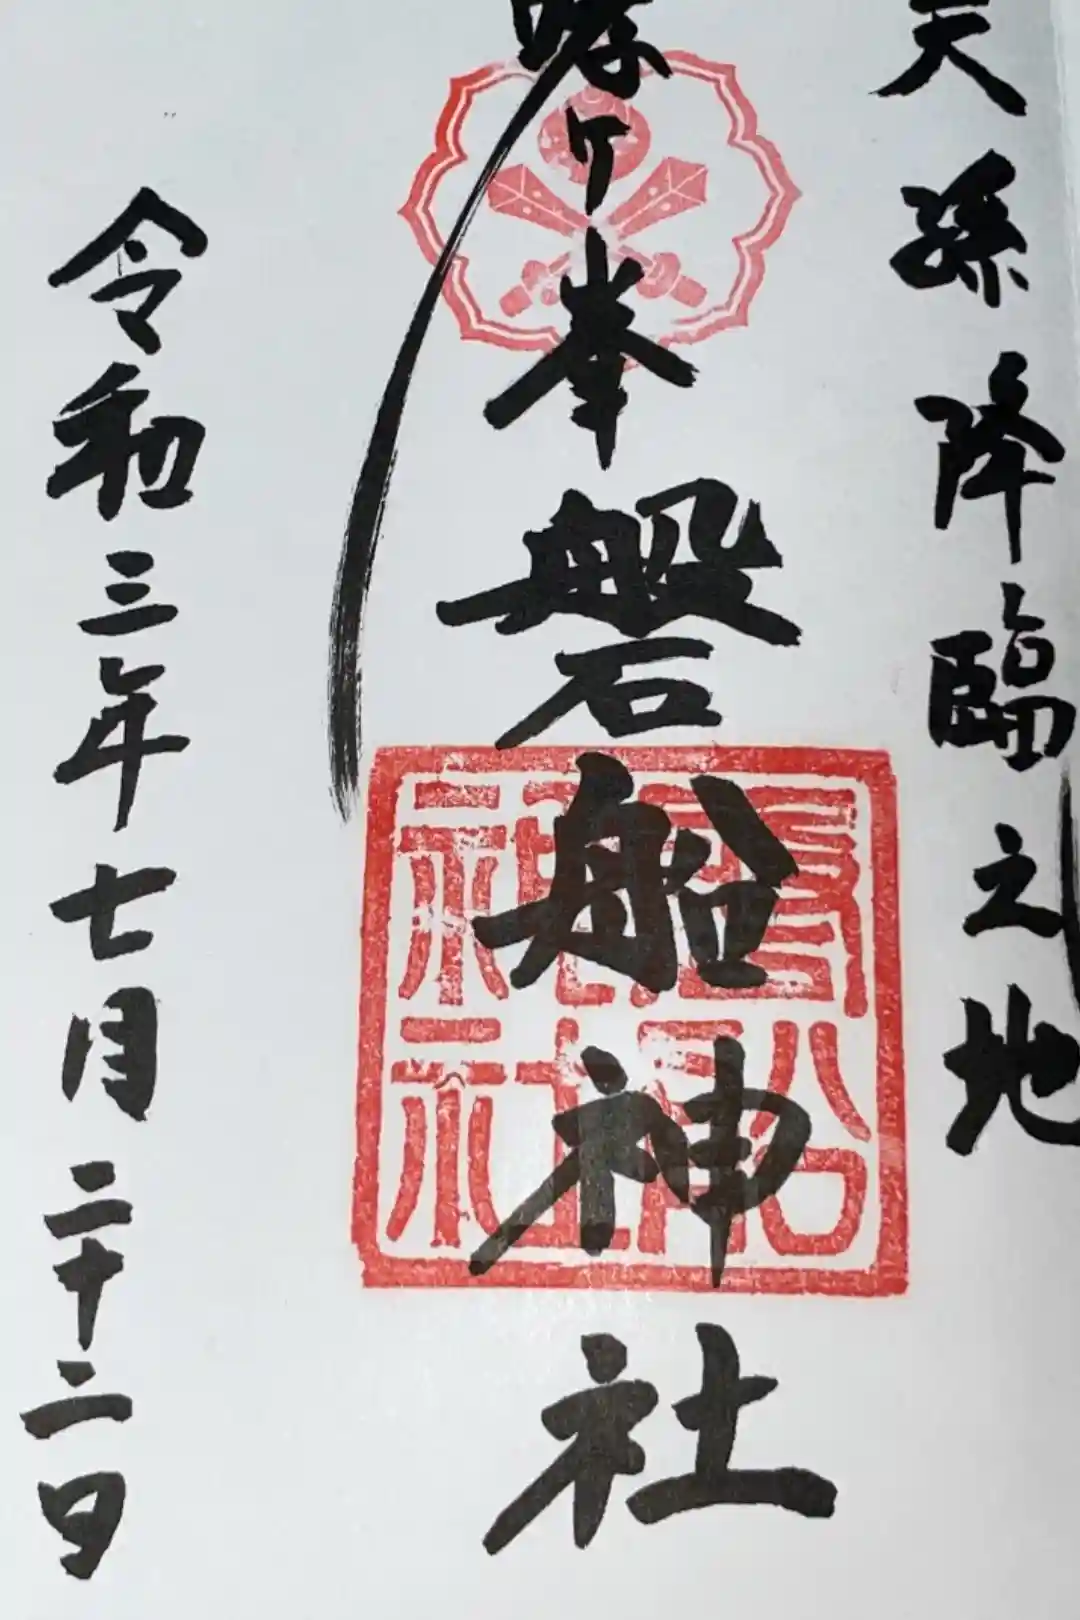 天孫降臨之地
哮ヶ峯磐船神社
令和三年七月二十二日
磐船神社